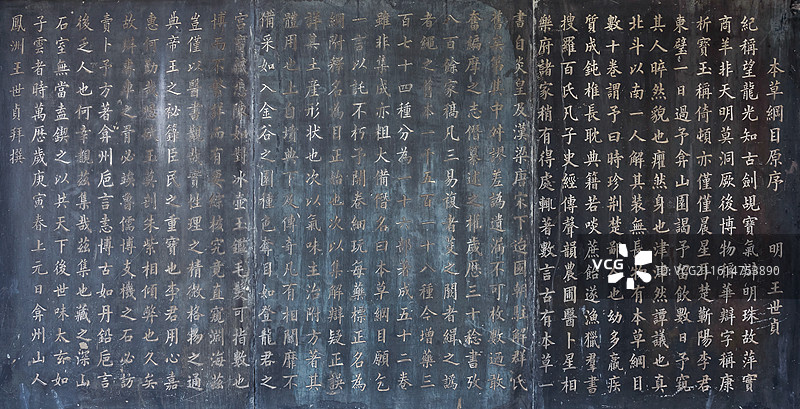 本草綱目原序　明　王世貞
紀稱望龍光知古劍覘寶氣辨明珠故萍實
商羊非天明莫洞厥後博物稱華辯字稱康
析寶玉稱倚頓亦僅僅晨星耳楚蘄陽李君
東璧一日過予弇山園謁予留飲數日予窺
其人睟然貌也癯然身也津津然譚議也真
北斗以南一人解其裝無長物有本草綱目
數十卷謂予曰時珍荊楚鄙人也幼多羸疾
質成鈍椎長耽典籍若啖蔗飴遂漁獵羣書
搜羅百氏凡子史經傳聲韻農圃醫卜星相
樂府諸家稍有得處輒著數言古有本草一
書自炎皇及漢梁唐宋下迨國朝註解群氏
舊矣第其中舛謬差譌遺漏不可枚數迺敢
奮編摩之志僭纂述之權歲歷三十稔書攷
八百餘家稿凡三易複者芟之闕者緝之譌
者繩之舊本一千五百一十八種今增藥三
百七十四種分為一十六部著成五十二卷
雖非集成亦粗大備僭名曰本草綱目願乞
一言以託不朽予開卷細玩每藥標正名為
綱附釋名為目正始也次以集解辯疑正誤
詳其土產形狀也次以氣味主治附方著其
體用也上自墳典下及傳奇凡有相關靡不
備采如入金谷之園種色奪目如登龍君之
宮寶藏悉陳如對冰壺玉鑑毛髮可指數也
博而不繁詳而有要綜核究竟直窺淵海茲
豈僅以醫書覯哉實性理之精微格物之通
典帝王之秘籙臣民之重寶也李君用心嘉
惠何勤哉噫碔玉莫剖朱紫相傾弊也久矣
故辨專車之骨必竢魯儒博支機之石必訪
賣卜予方著弇州卮言恚博古如丹鉛卮言
後之人也何幸覩茲集哉茲集也藏之深山
石室無當盍鍥之以共天下後世味太玄如
子雲者時萬歷歲庚寅春上元日弇州山人
鳳洲王世貞拜撰
VCG
VCG211614753890